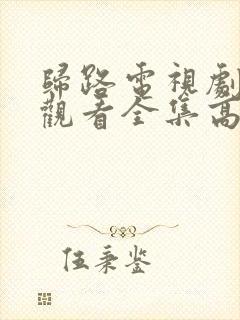 歸路電視劇
觀看全集高
伍秉鉴